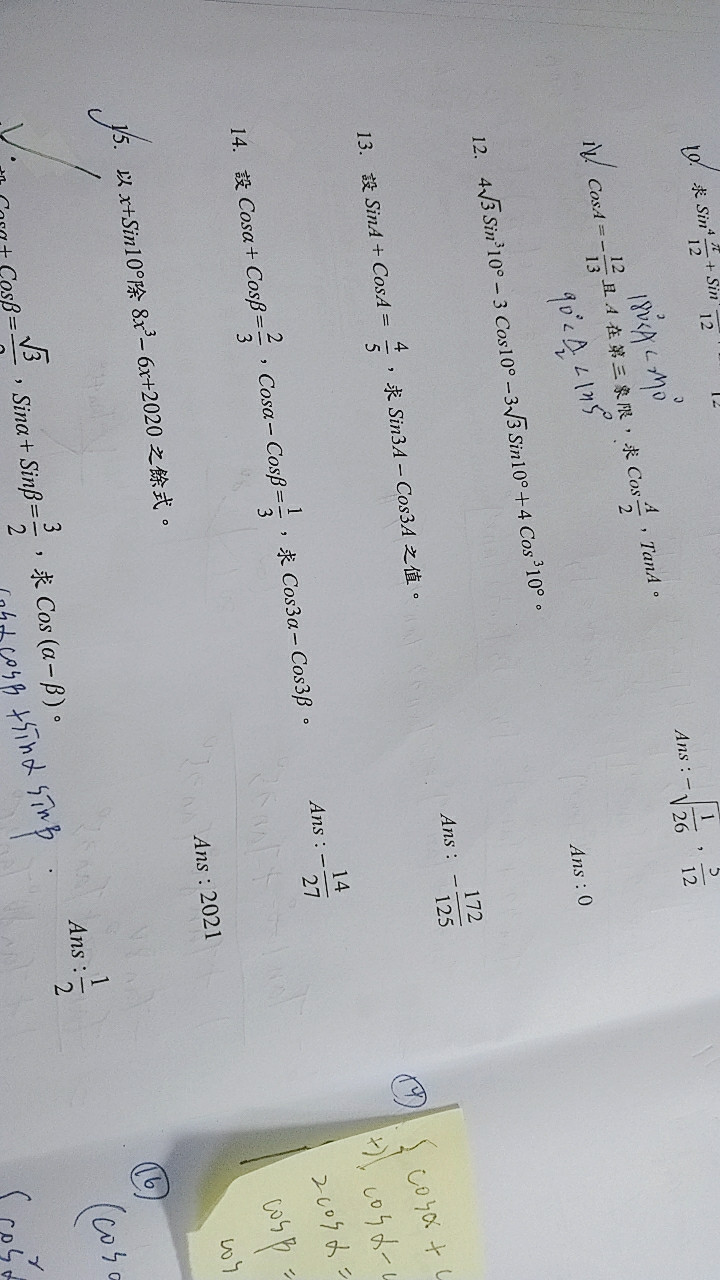 10. 求 Sin⁴ π/12 + Sin
12
11. CosA = −12/13 且 A 在第三象限，求 Cos A/2 ，TanA。
Ans : −√(1/26) , 5/12
12. 4√3 Sin³10° − 3 Cos10° − 3√3 Sin10° + 4 Cos³10°。
Ans : 0
13. 設 SinA + CosA = 4/5 ，求 Sin3A − Cos3A 之值。
Ans : −172/125
14. 設 Cosα + Cosβ = 2/3 ，Cosα − Cosβ = 1/3 ，求 Cos3α − Cos3β。
Ans : −14/27
15. 以 x+Sin10°除 8x³ − 6x+2020 之餘式。
Ans : 2021
設 Cosα + Cosβ = √3/2 ，Sinα + Sinβ = 3/2 ，求 Cos (α − β)。
cosα cosβ + sinα sinβ
Ans : 1/2
⑭
{ cosα +
+) cosα −
2cosα =
cosβ =
cos
⑯
(cosα
{ cos²